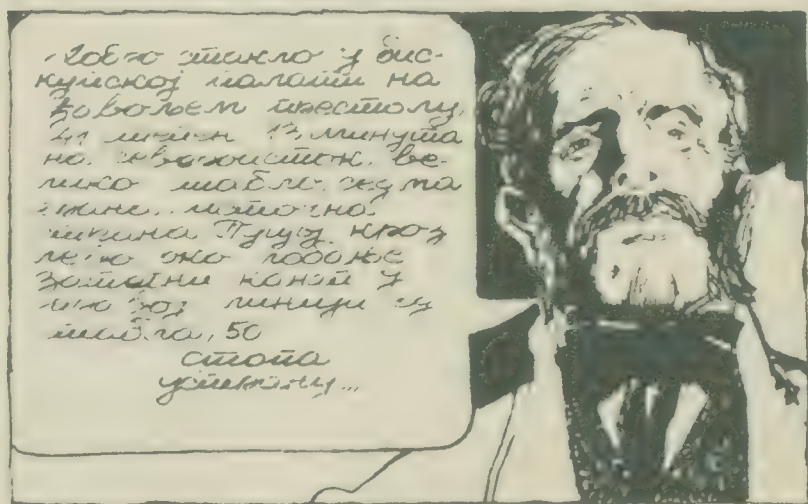 Добро стакло у бис-
купској палати на
ђавољем престолу,
41 степен 13 минута
на североисток. ве-
лико стабло. седма
грана. источна
страна. Пуцај кроз
лево око лобање
канап у
линији од
стабла, 50
стопа